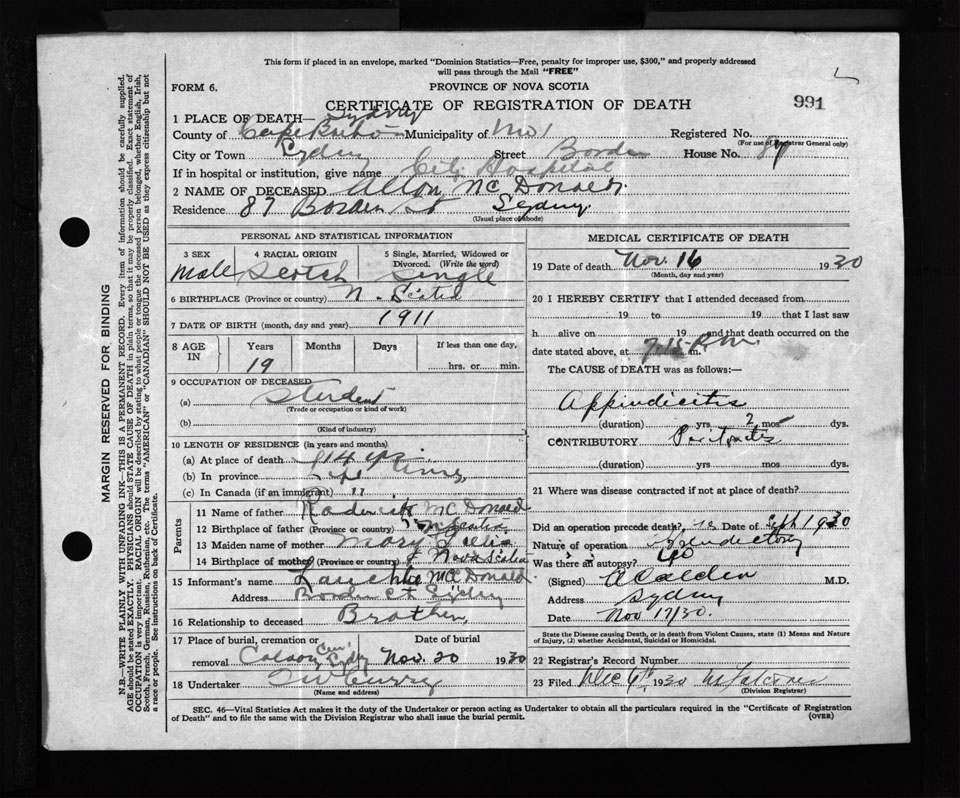 This form if placed in an envelope, marked "Dominion Statistics—Free, penalty for improper use, $300," and properly addressed
will pass through the Mail "FREE"
FORM 6.
PROVINCE OF NOVA SCOTIA
CERTIFICATE OF REGISTRATION OF DEATH
991
1 PLACE OF DEATH— Sydney
County of Cape Breton Municipality of No 1 Registered No.
(For use of Registrar General only)
City or Town Sydney Street Borden House No. 87
If in hospital or institution, give name City Hospital
2 NAME OF DECEASED Allan McDonald
Residence 87 Borden St Sydney.
(Usual place of abode)
PERSONAL AND STATISTICAL INFORMATION
3 SEX Male
4 RACIAL ORIGIN Scotch
5 Single, Married, Widowed or Divorced. (Write the word) Single
6 BIRTHPLACE (Province or country) N. Scotia
7 DATE OF BIRTH (month, day and year) 1911
8 AGE IN Years Months Days If less than one day,
19 hrs. or min.
9 OCCUPATION OF DECEASED
(a) Student
(Trade or occupation or kind of work)
(b)
(Kind of industry)
10 LENGTH OF RESIDENCE (in years and months)
(a) At place of death 14 yrs
(b) In province Life
(c) In Canada (if an immigrant) "
Parents
11 Name of father Roderick McDonald
12 Birthplace of father (Province or country) N Scotia
13 Maiden name of mother Mary Gillis
14 Birthplace of mother (Province or country) Nova Scotia
15 Informant's name McDonald
Address Borden St Sydney
16 Relationship to deceased Brother
17 Place of burial, cremation or Date of burial
removal Cem. Sydney Nov. 20 1930
18 Undertaker Curry
(Name and address)
MEDICAL CERTIFICATE OF DEATH
19 Date of death Nov. 16 1930
(Month, day and year)
20 I HEREBY CERTIFY that I attended deceased from
19 to 19 that I last saw
h alive on 19 and that death occurred on
date stated above, at 7.15 P.m. m.
The CAUSE of DEATH was as follows:—
Appindicitis
(duration) yrs. 2 mos. dys.
CONTRIBUTORY
(duration) yrs. mos. dys.
21 Where was disease contracted if not at place of death?
Did an operation precede death? Date of Sept 1930
Nature of operation
Was there an autopsy?
(Signed) M.D.
Address Sydney
Date Nov 17/30.
State the Disease causing Death, or in death from Violent Causes, state (1) Means and Nature
of Injury, (2) whether Accidental, Suicidal or Homicidal.
22 Registrar's Record Number
23 Filed Dec 1930
(Division Registrar)
SEC. 46—Vital Statistics Act makes it the duty of the Undertaker or person acting as Undertaker to obtain all the particulars required in the "Certificate of Registration
of Death" and to file the same with the Division Registrar who shall issue the burial permit.
(OVER)
MARGIN RESERVED FOR BINDING
N.B.—WRITE PLAINLY WITH UNFADING INK—THIS IS A PERMANENT RECORD. Every item of information should be carefully supplied.
AGE should be stated EXACTLY. PHYSICIANS should STATE CAUSE OF DEATH in plain terms, so that it may be properly classified. Exact statement of
OCCUPATION is very important. RACIAL ORIGIN will be described by stating to what people or tongue the deceased person belonged, whether English, Irish,
Scotch, French, German, Russian, Ruthenian, etc. The terms "AMERICAN" or "CANADIAN" SHOULD NOT BE USED as they express citizenship but not
a race or people. See instructions on back of Certificate.